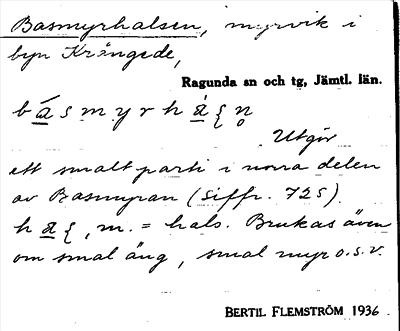 Basmyrhalsen, myrvik i
byn Krångede,
Ragunda sn och tg, Jämtl. län.
Utgör
ett smalt parti i norra delen
av Basmyran (siffr. 725).
m. = hals. Brukas även
om smal äng, smal myr o.s.v.
BERTIL FLEMSTRÖM 1936